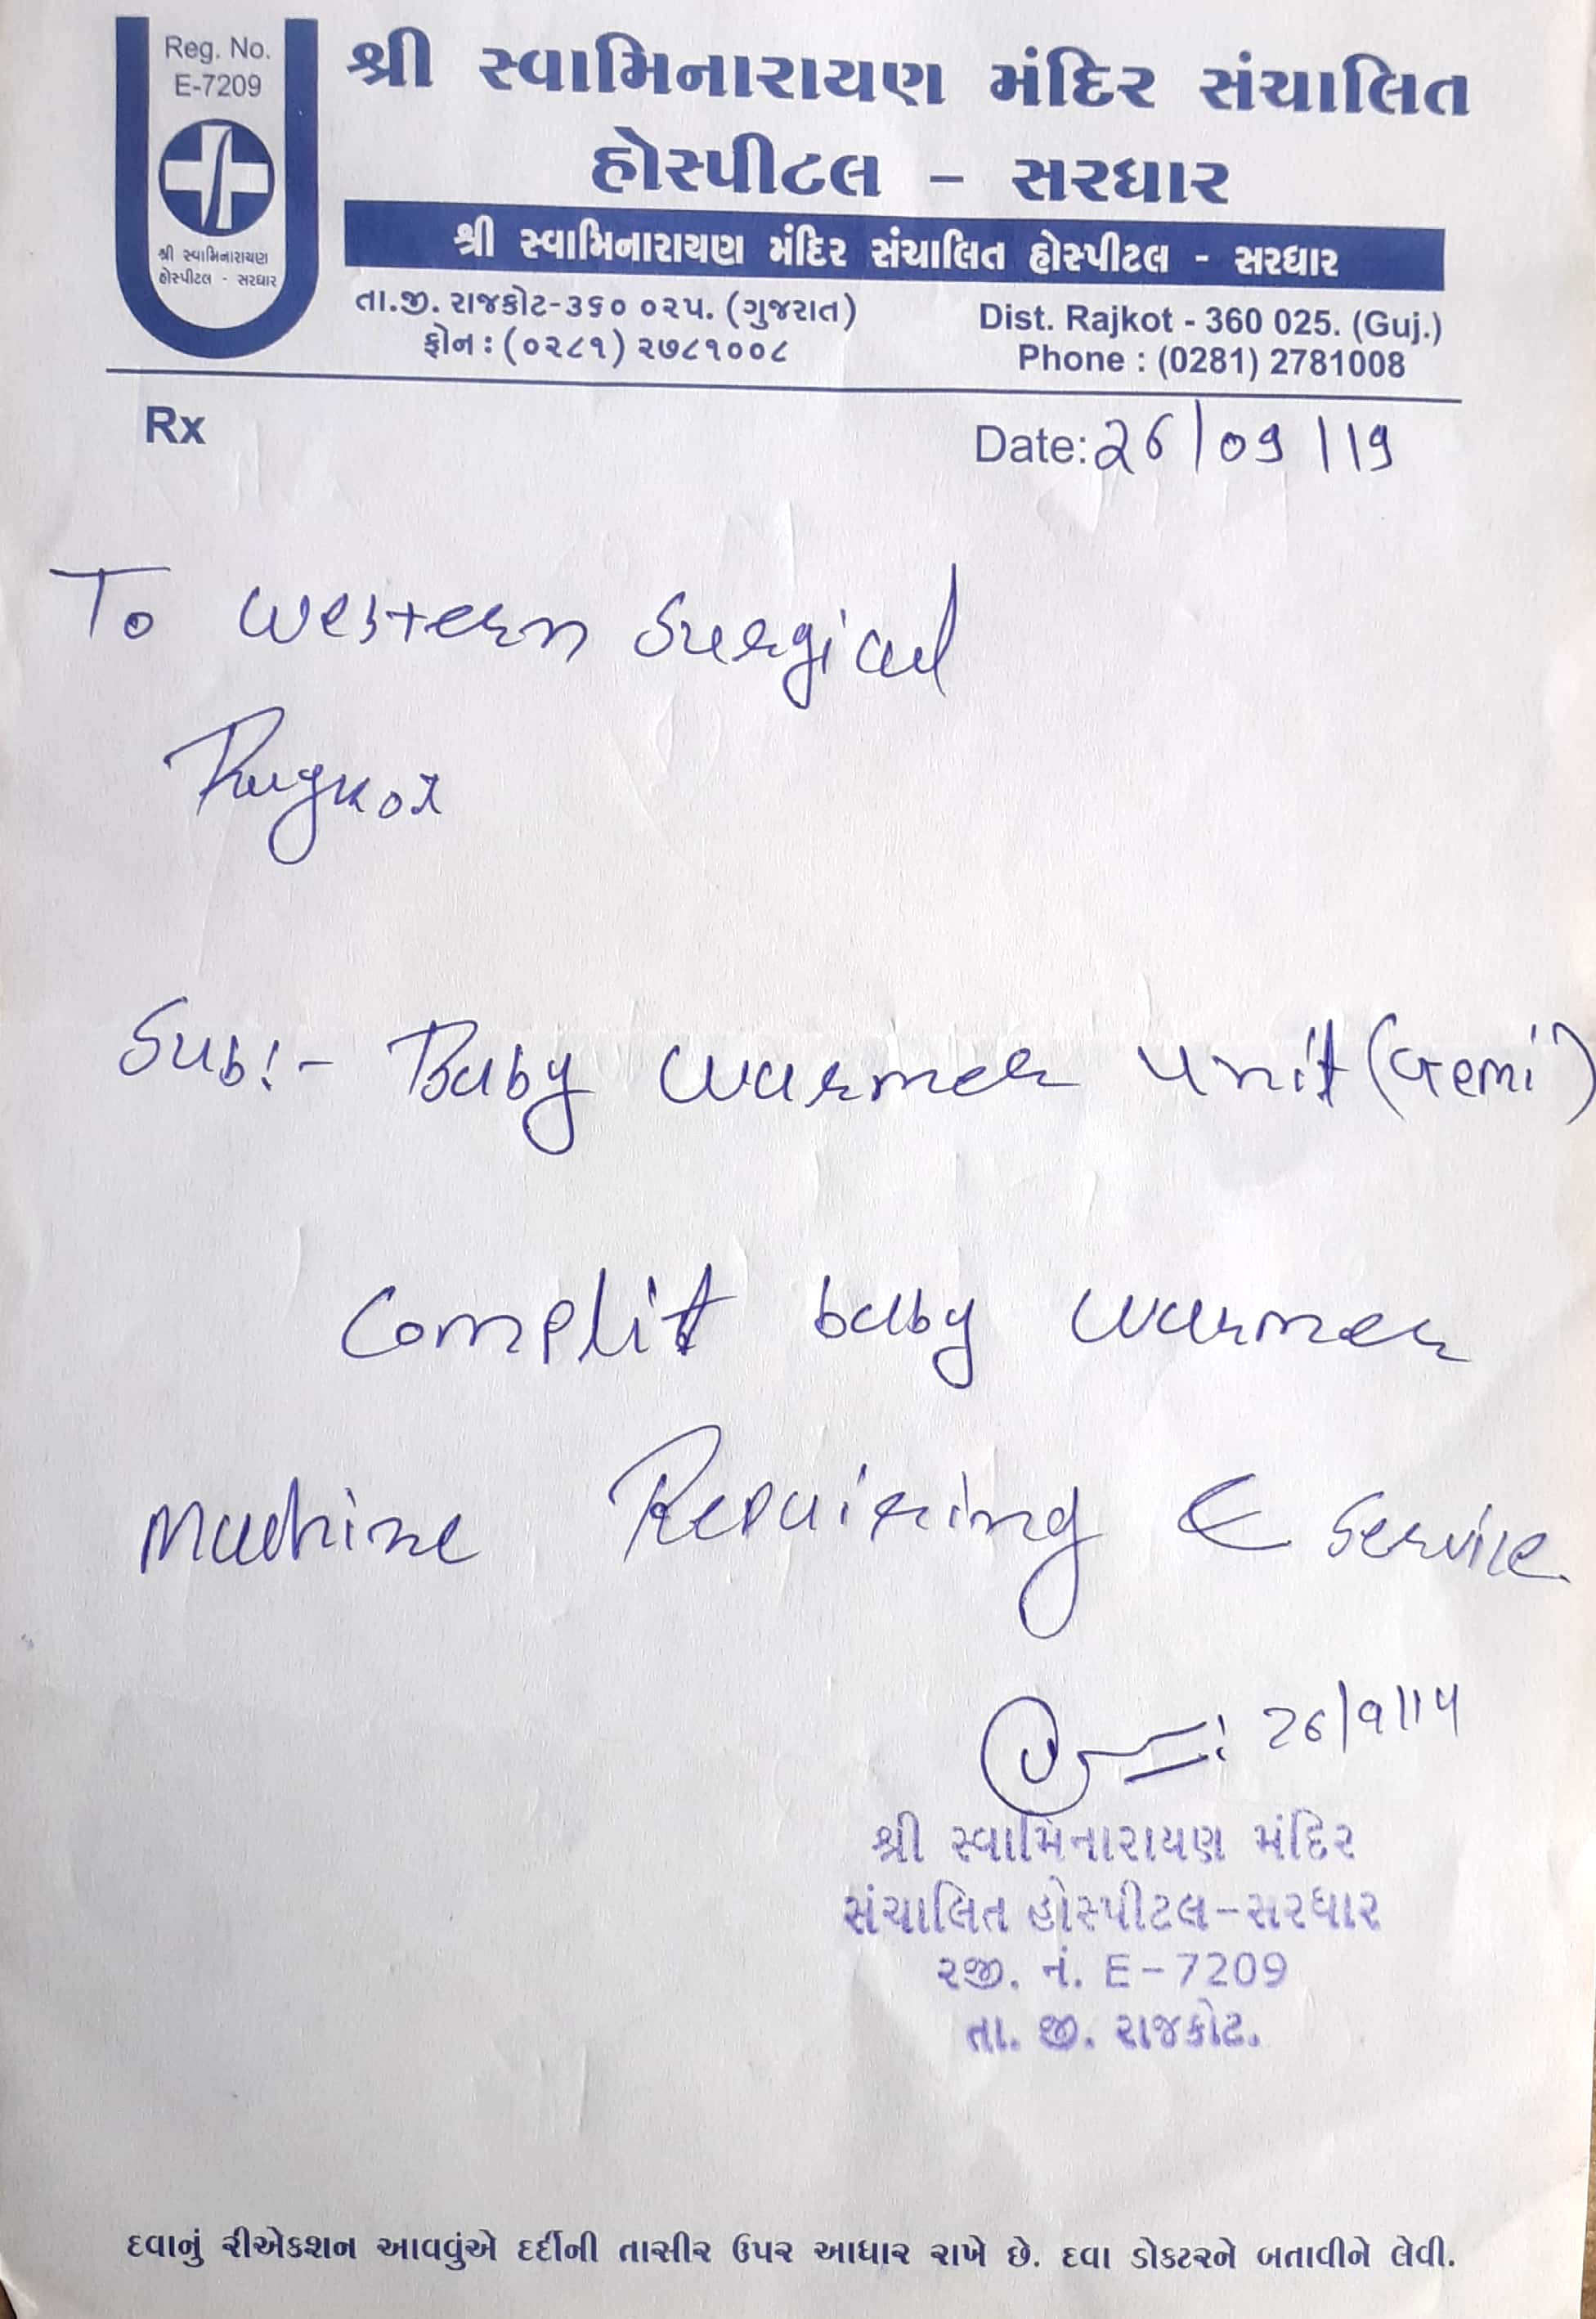 Reg. No.
E-7209
શ્રી સ્વામિનારાયણ
હોસ્પીટલ - સરધાર
શ્રી સ્વામિનારાયણ મંદિર સંચાલિત
હોસ્પીટલ - સરધાર
શ્રી સ્વામિનારાયણ મંદિર સંચાલિત હોસ્પીટલ - સરધાર
તા.જી. રાજકોટ-૩૬૦ ૦૨૫. (ગુજરાત)
ફોન : (૦૨૮૧) ૨૭૮૧૦૦૮
Dist. Rajkot - 360 025. (Guj.)
Phone : (0281) 2781008
Rx
Date: 26/09/19
To Western Surgical
Rajkot
Sub:- Baby warmer unit (Gemi)
Complit baby warmer
Machine Repairing & Service.
26/9/19
શ્રી સ્વામિનારાયણ મંદિર
સંચાલિત હોસ્પીટલ-સરધાર
રજી. નં. E-7209
તા. જી. રાજકોટ.
દવાનું રીએકશન આવવુંએ દર્દીની તાસીર ઉપર આધાર રાખે છે. દવા ડોકટરને બતાવીને લેવી.